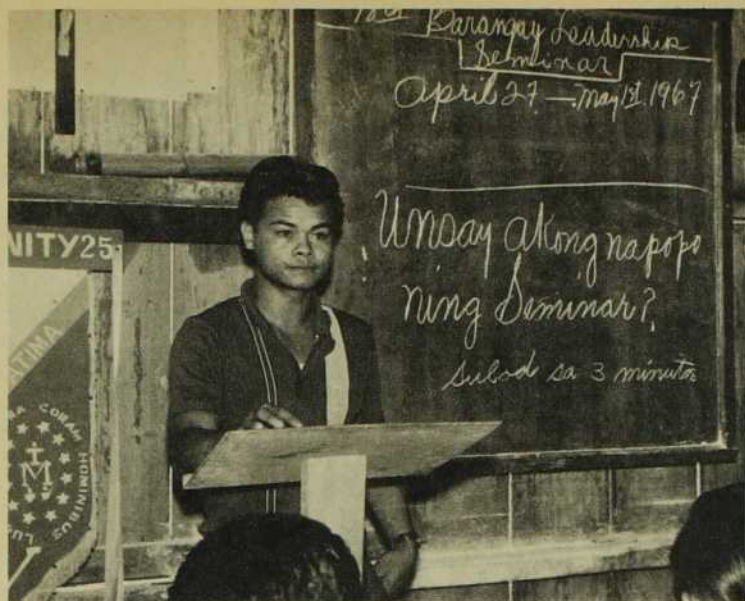 Barangay Leadership
Seminar
April 27 — May 1st, 1967
Unsay akong napopo
ning Seminar?
sulod sa 3 minutos
NITY 25
LTIMA
CORAM HOMINIBUS